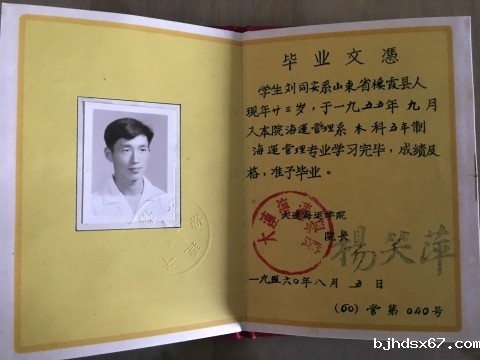 毕业文凭
学生刘同安系山东省栖霞县人
现年廿三岁，于一九五五年九月
入本院海运管理系本科五年制
海运管理专业学习完毕，成绩及
格，准予毕业。
大连海运学院
院长
杨笑萍
一九六〇年八月五日
(60)管第040号
bjhdsx67.com